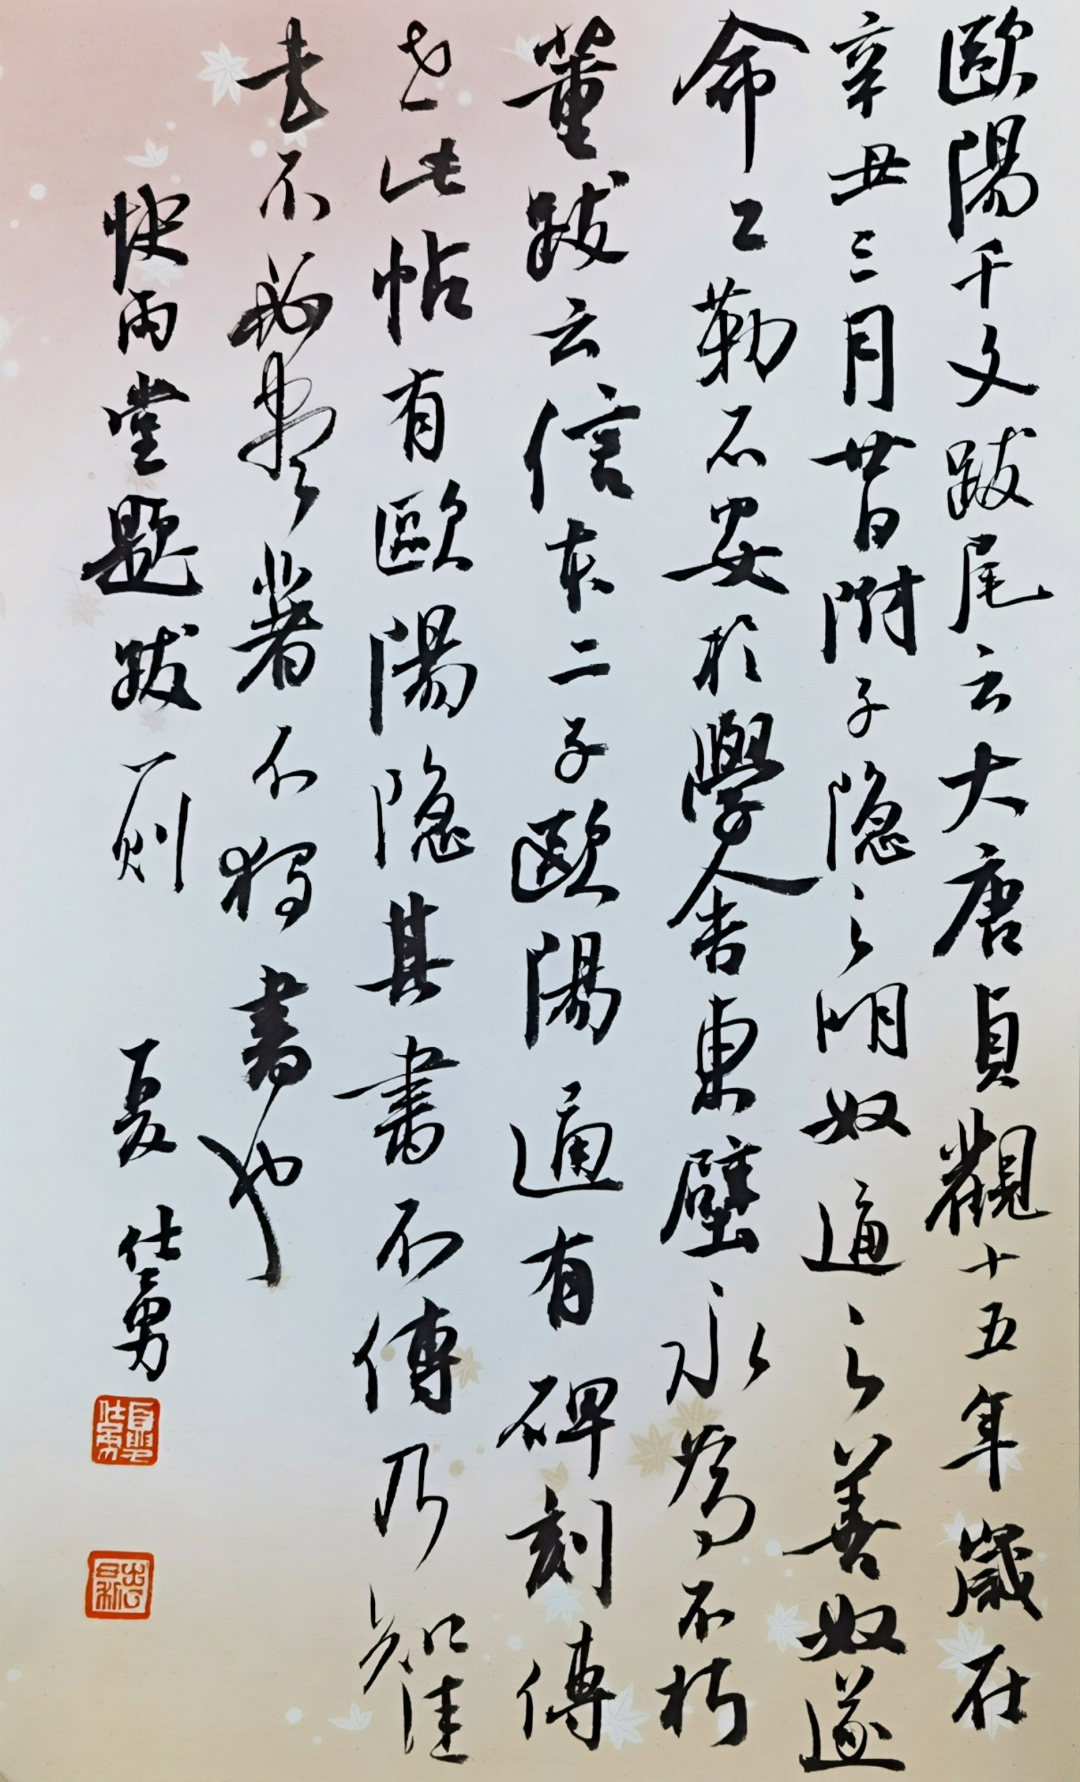 歐陽千文跋尾云大唐貞觀十五年歲在
辛丑三月廿日附子隐之明奴通之善奴遂
命工勒石安於學舍東壁永為不朽
董跋云信本二子歐陽通有碑刻傳
世此帖有歐陽隐其書不傳乃知佳
書不能盡著不獨書也
快雨堂題跋一則
夏仕勇